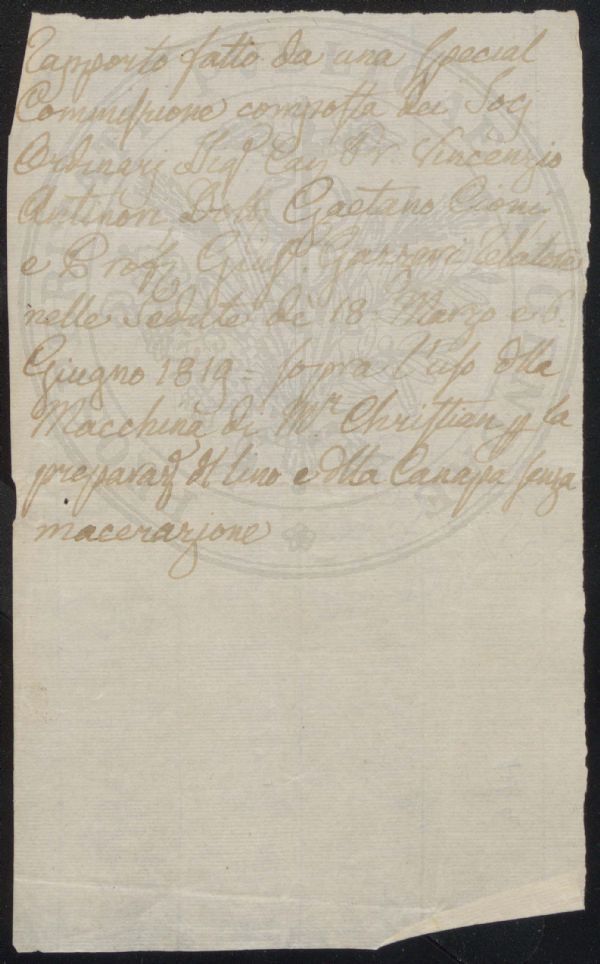 Rapporto fatto da una special
Commissione composta dei Socj
Ordinarj Sig.ri Cav. Pr. Vincenzio
Antinori, Dott. Gaetano Cioni,
e Prof. Gius. Gazzeri Relatore
nelle Sedute de' 18 Marzo e 6.
Giugno 1819 = sopra l'uso dlla
Macchina di Mr. Christian p la
preparaz. dl lino e dlla Canapa senza
macerazione